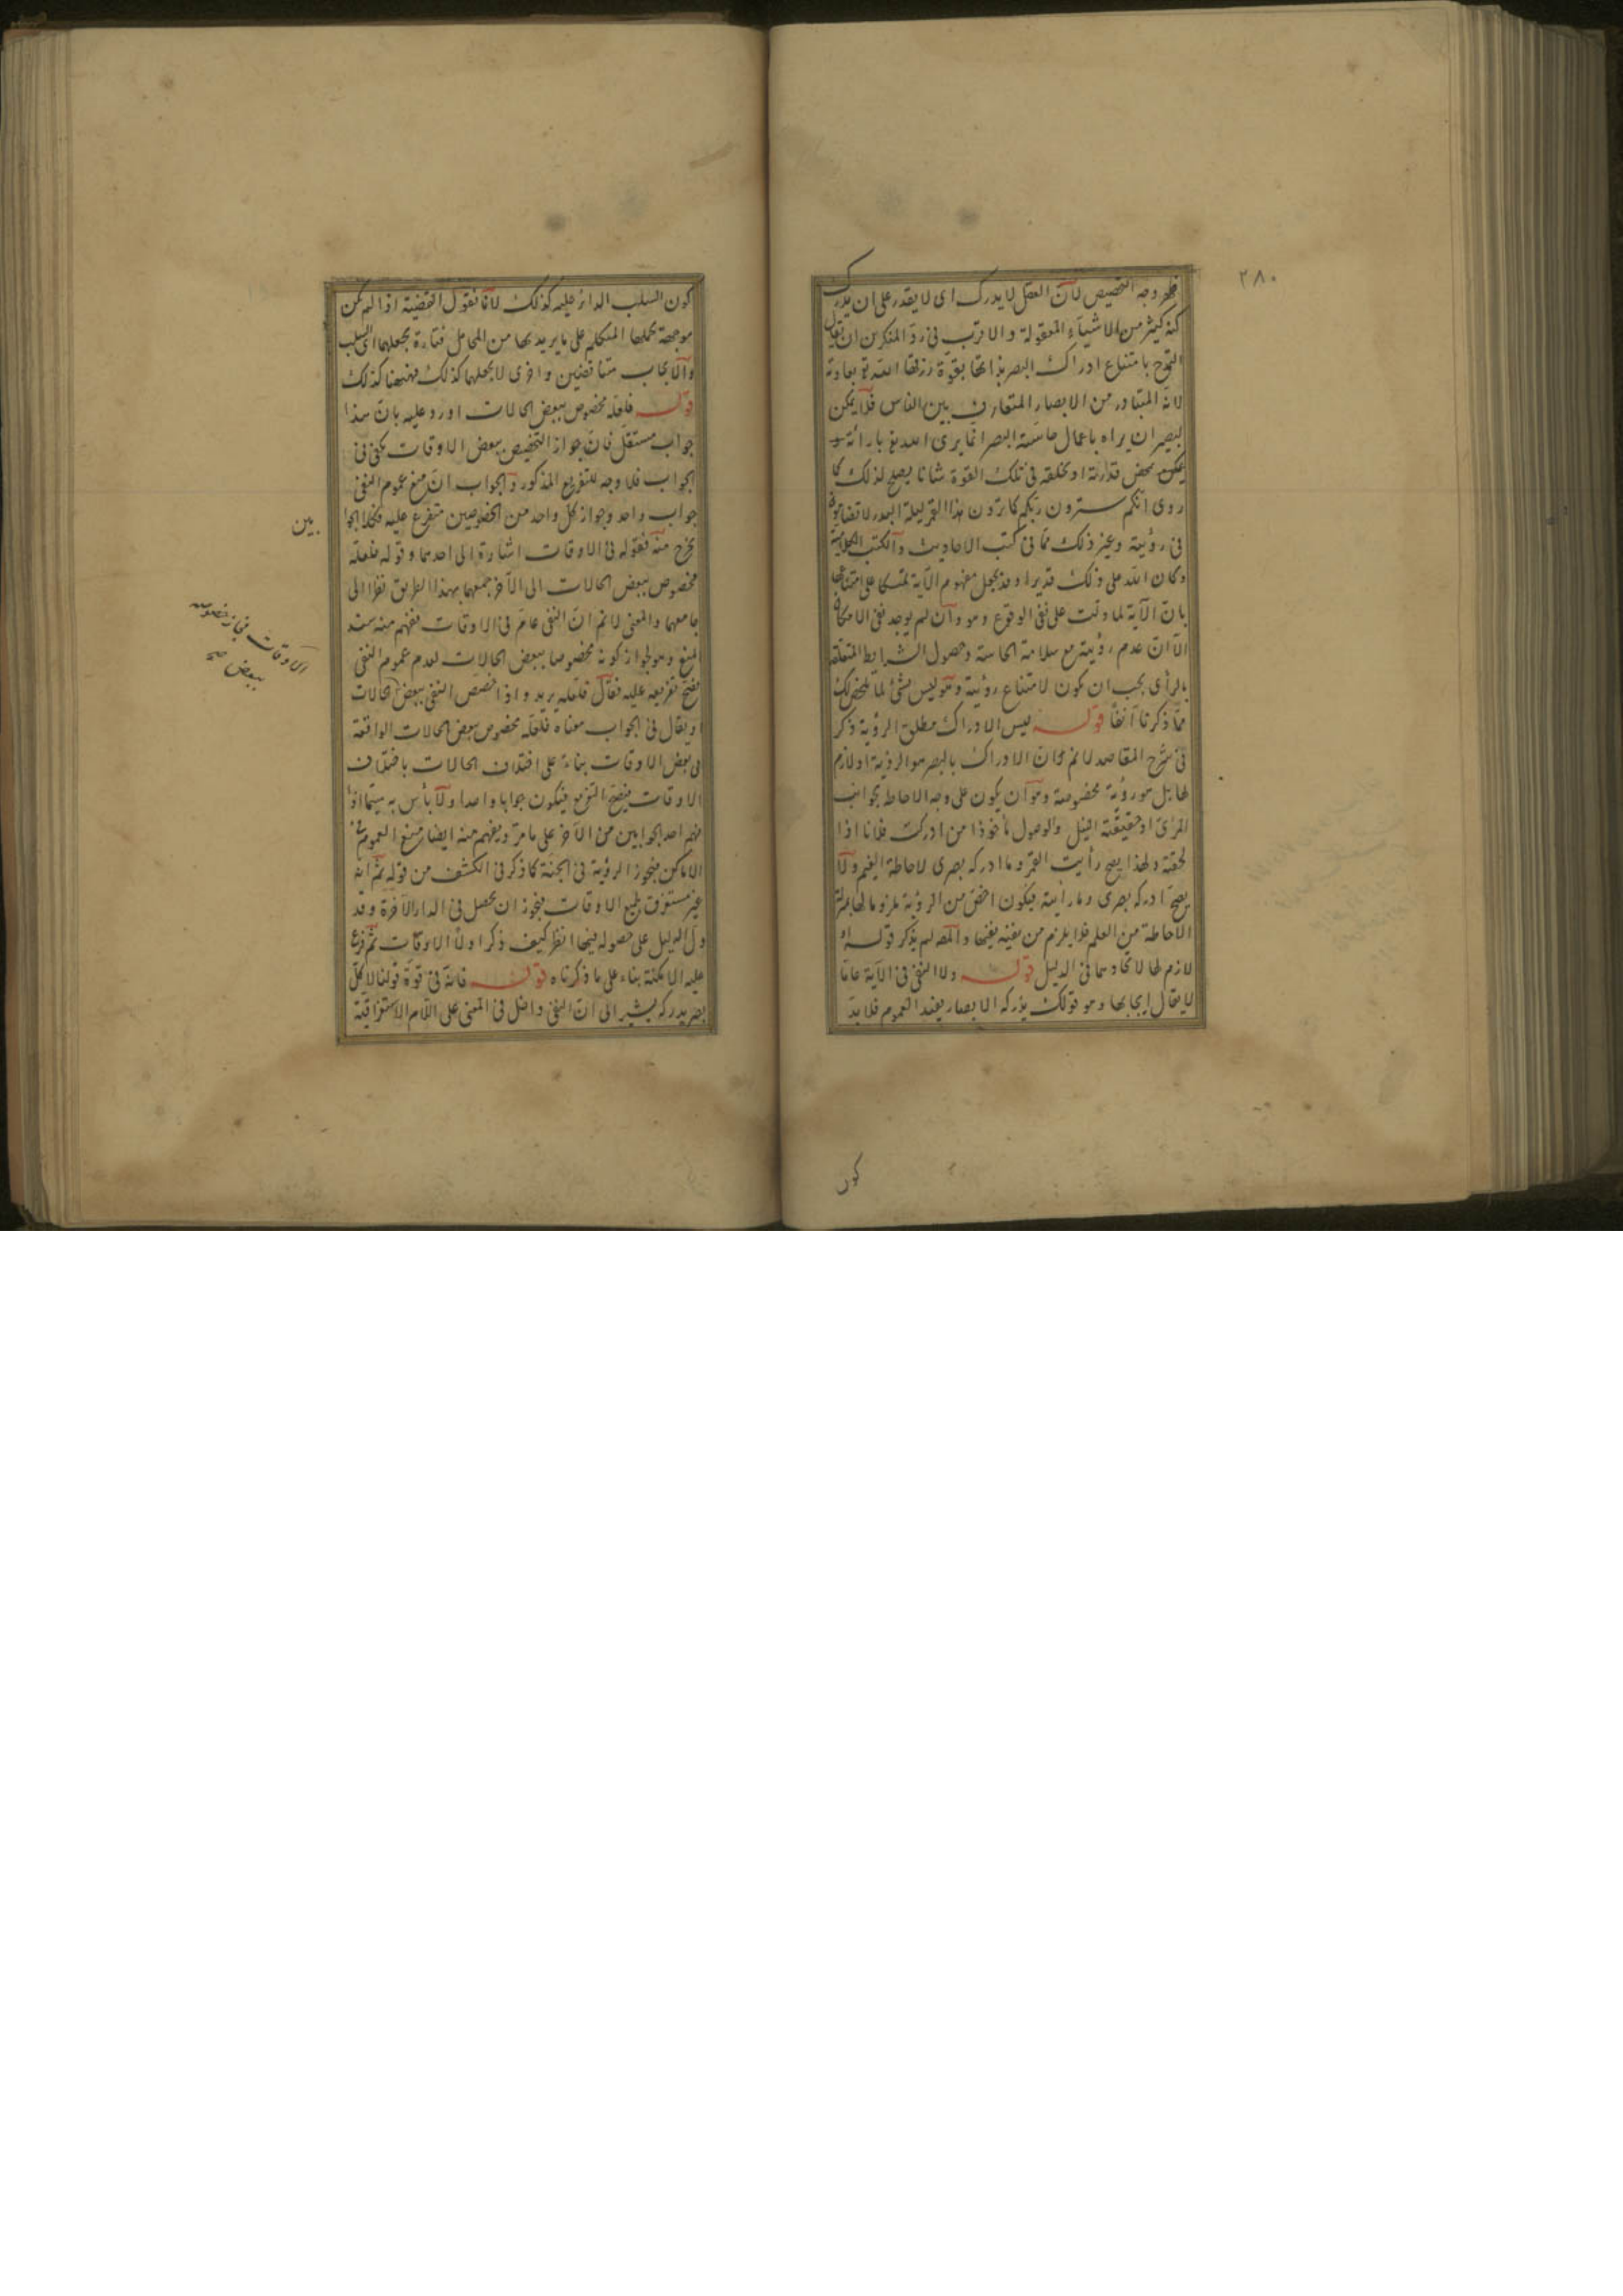 ٢٨٠
وجه التخصيص لان العقل لا يدرك اى لا يقدر على ان يدرك
كنه كثير من الاشياء المعقولة والاقرب فى رد المنكرين ان يقال
التمدح بامتناع ادراك البصر بذاتها بقوة رزقها الله تع بعادته
لانه المتبادر من الابصار المتعارف بين الناس فلا يمكن
لبصير ان يراه باعمال حاسة البصر انما يرى الله تع بارائة
بمحض قدرته او بخلقه فى تلك القوة شانا يصلح لذلك كما
روى انكم سترون ربكم كما ترون هذا القمر ليلة البدر لا تضامون
فى رؤيته وغير ذلك مما فى كتب الاحاديث والكتب الكلامية
وكان الله على ذلك قديرا وقد يجعل مفهوم الآية متمسكا على امتناعها
بان الآية لما دلت على نفى الوقوع وهو وان لم يوجد نفى الامكان
الا ان عدم رؤيته مع سلامة الحاسة وحصول الشرايط المتعلقة
بالرأى يجب ان يكون لامتناع رؤيته وهو ليس بشئ لما لك
مما ذكرنا آنفا قوله ليس الادراك مطلق الرؤية ذكر
فى شرح المقاصد لا نم ان الادراك بالبصر هو الرؤية او لازم
لها بل هو رؤية مخصوصة وهو ان يكون على وجه الاحاطة بجوانب
المرئى او حقيقته النيل والوصول مأخوذا من ادركت فلانا اذا
لحقته ولهذا يصح رأيت القمر وما ادركه بصرى لاحاطة الغيم ولا
يصح ادركه بصرى وما رأيته فيكون اخص من الرؤية ملزوما لها بمنزلة
الاحاطة من العلم فلا يلزم من نفيه نفيها والمصـ لم يذكر قوله او
لازم لها لاتحادهما فى الدليل قوله ولا النفى فى الآية عاما
لا يقال ايجابها وهو قولك يدركه الابصار يفيد العموم فلا بد
كون
كون السلب الدائر عليه كذلك لانا نقول القضية اذا لم تكن
موجهة يحملها المتكلم على ما يريد بها من المحامل فتارة يجعلها اى السلب
والايجاب متناقضين واخرى لا يجعلهما كذلك فههنا كذلك
قوله فلعله مخصوص ببعض الحالات اورد عليه بان هذا
جواب مستقل فان جواز التخصيص ببعض الاوقات يكفى فى
الجواب فلا وجه للتفريع المذكور والجواب ان منع عموم النفى
جواب واحد وجواز كل واحد من الخصوصين متفرع عليه فكلا الجوابين
يخرج منه فقوله فى الاوقات اشارة الى احدهما وقوله فلعله
مخصوص ببعض الحالات الى الآخر جمعهما بهذا الطريق نظرا الى
جامعهما والمعنى لا نم ان النفى عام فى الاوقات ففهم منه سند
المنع وهو جواز كونه مخصوصا ببعض الحالات لعدم عموم النفى
فصح تفريعه عليه فقال فلعله يريد واذا خصص النفى ببعض الحالات
او يقال فى الجواب معناه فلعله مخصوص ببعض الحالات الواقعة
فى بعض الاوقات بناء على اختلاف الحالات باختلاف
الاوقات فيصح التفريع فيكون جوابا واحدا ولا بأس به سيما اذا
فهم احد الجوابين من الآخر على ما مر ويفهم منه ايضا منع العموم فى
الاماكن فيجوز الرؤية فى الجنة كما ذكر فى الكشف من قوله ثم انه
غير مستغرق لجميع الاوقات فيجوز ان يحصل فى الدار الآخرة وقد
دل الدليل على حصوله فيها انظر كيف ذكر اولا الاوقات ثم فرع
عليه الامكنة بناء على ما ذكرناه قوله فانه فى قوة قولنا لا كل
بصر يدركه يشير الى ان النفى داخل فى المعنى على اللام الاستغراقية
بين
الاوقات فجاز خصوصه
ببعض صح